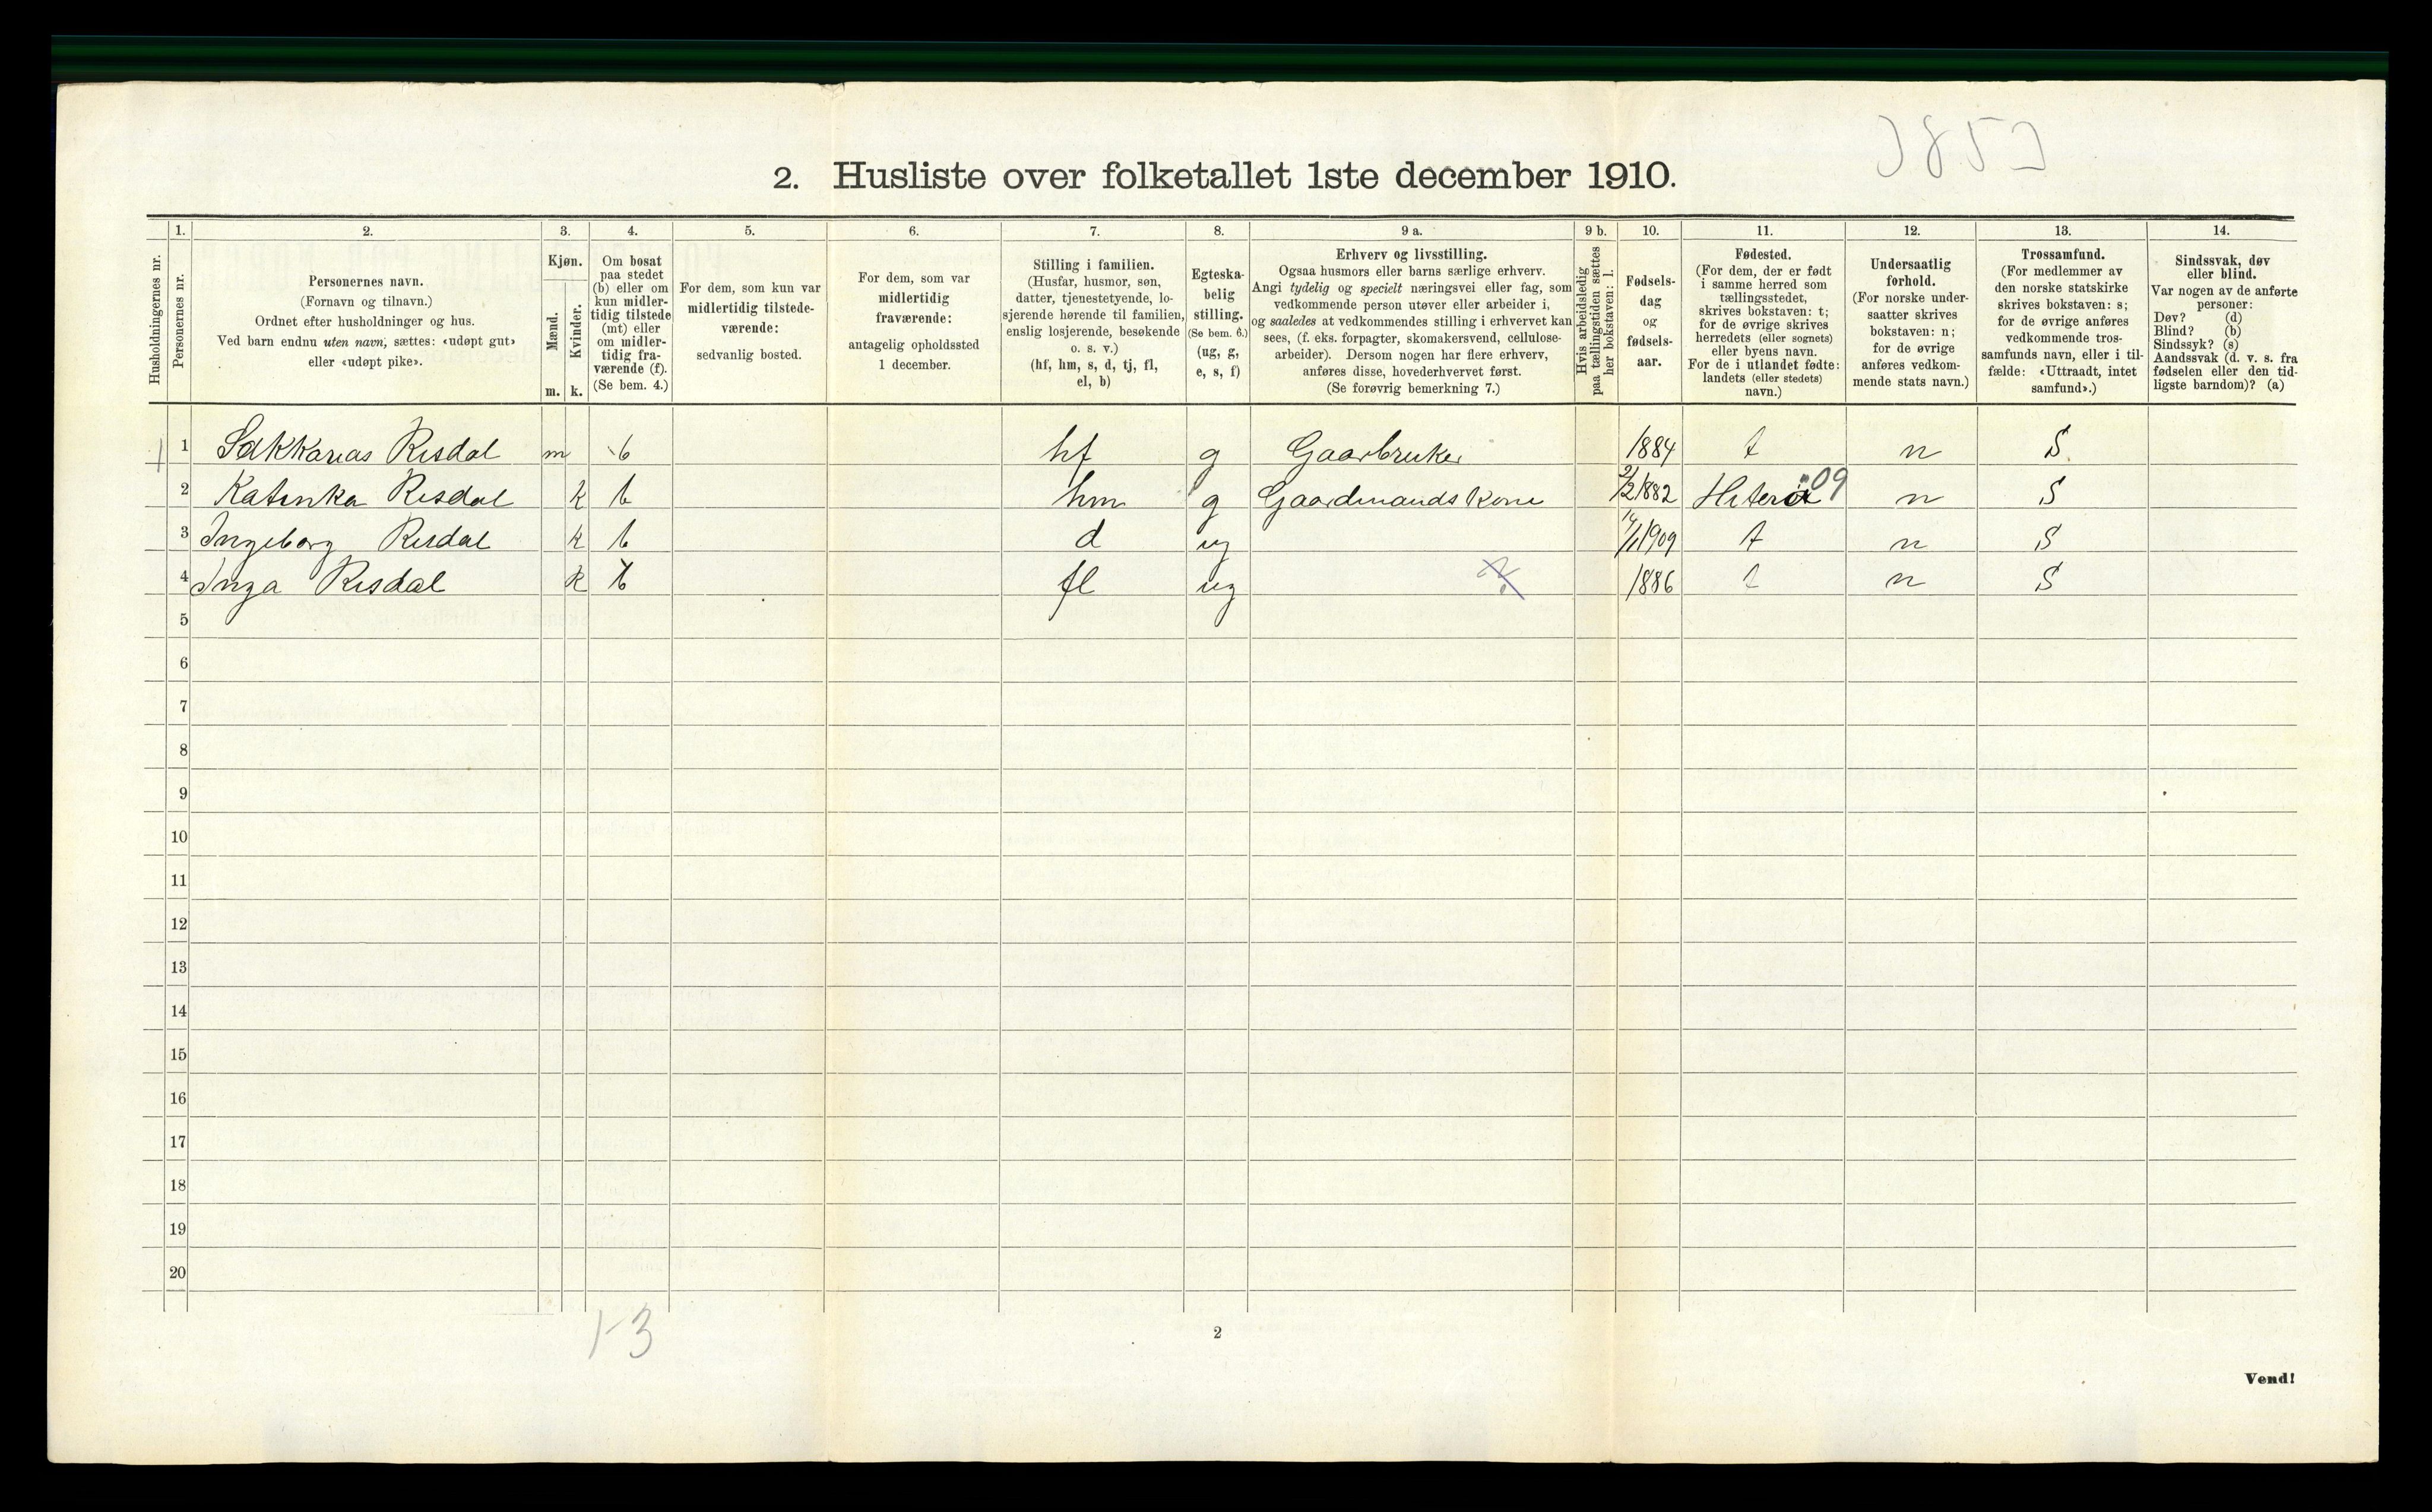 2. Husliste over folketallet 1ste december 1910.
Husholdningernes nr.
1.
Personernes nr.
2.
Personernes navn.
(Fornavn og tilnavn.)
Ordnet efter husholdninger og hus.
Ved barn endnu uten navn, sættes: «udøpt gut»
eller «udøpt pike».
3.
Kjøn.
Mænd.
Kvinder.
m. k.
4.
Om bosat
paa stedet
(b) eller om
kun midler-
tidig tilstede
(mt) eller
om midler-
tidig fra-
værende (f).
(Se bem. 4.)
5.
For dem, som kun var
midlertidig tilstede-
værende:
sedvanlig bosted.
6.
For dem, som var
midlertidig
fraværende:
antagelig opholdssted
1 december.
7.
Stilling i familien.
(Husfar, husmor, søn,
datter, tjenestetyende, lo-
sjerende hørende til familien,
enslig losjerende, besøkende
o. s. v.)
(hf, hm, s, d, tj, fl,
el, b)
8.
Egteska-
belig
stilling.
(Se bem. 6.)
(ug, g,
e, s, f)
9 a.
Erhverv og livsstilling.
Ogsaa husmors eller barns særlige erhverv.
Angi tydelig og specielt næringsvei eller fag, som
vedkommende person utøver eller arbeider i,
og saaledes at vedkommendes stilling i erhvervet kan
sees, (f. eks. forpagter, skomakersvend, cellulose-
arbeider). Dersom nogen har flere erhverv,
anføres disse, hovederhvervet først.
(Se forøvrig bemerkning 7.)
9 b.
Hvis arbeidsledig
paa tællingstiden sættes
her bokstaven: l.
10.
Fødsels-
dag
og
fødsels-
aar.
11.
Fødested.
(For dem, der er født
i samme herred som
tællingsstedet,
skrives bokstaven: t;
for de øvrige skrives
herredets (eller sognets)
eller byens navn.
For de i utlandet fødte:
landets (eller stedets)
navn.)
12.
Undersaatlig
forhold.
(For norske under-
saatter skrives
bokstaven: n;
for de øvrige
anføres vedkom-
mende stats navn.)
13.
Trossamfund.
(For medlemmer av
den norske statskirke
skrives bokstaven: s;
for de øvrige anføres
vedkommende tros-
samfunds navn, eller i til-
fælde: «Uttraadt, intet
samfund».)
14.
Sindssvak, døv
eller blind.
Var nogen av de anførte
personer:
Døv? (d)
Blind? (b)
Sindssyk? (s)
Aandssvak (d. v. s. fra
fødselen eller den tid-
ligste barndom)? (a)
1 1 Sakkarias Risdal m b hf g Gaarbruker 1884 t n S
2 Katinka Risdal k b hm g Gaardmands Kone 2/2 1882 Hiterø 09 n S
3 Ingeborg Risdal k b d ug 14/1 1909 t n S
4 Inga Risdal k b fl ug 1886 t n S
5
6
7
8
9
10
11
12
13
14
15
16
17
18
19
20
1-3
2
Vend!